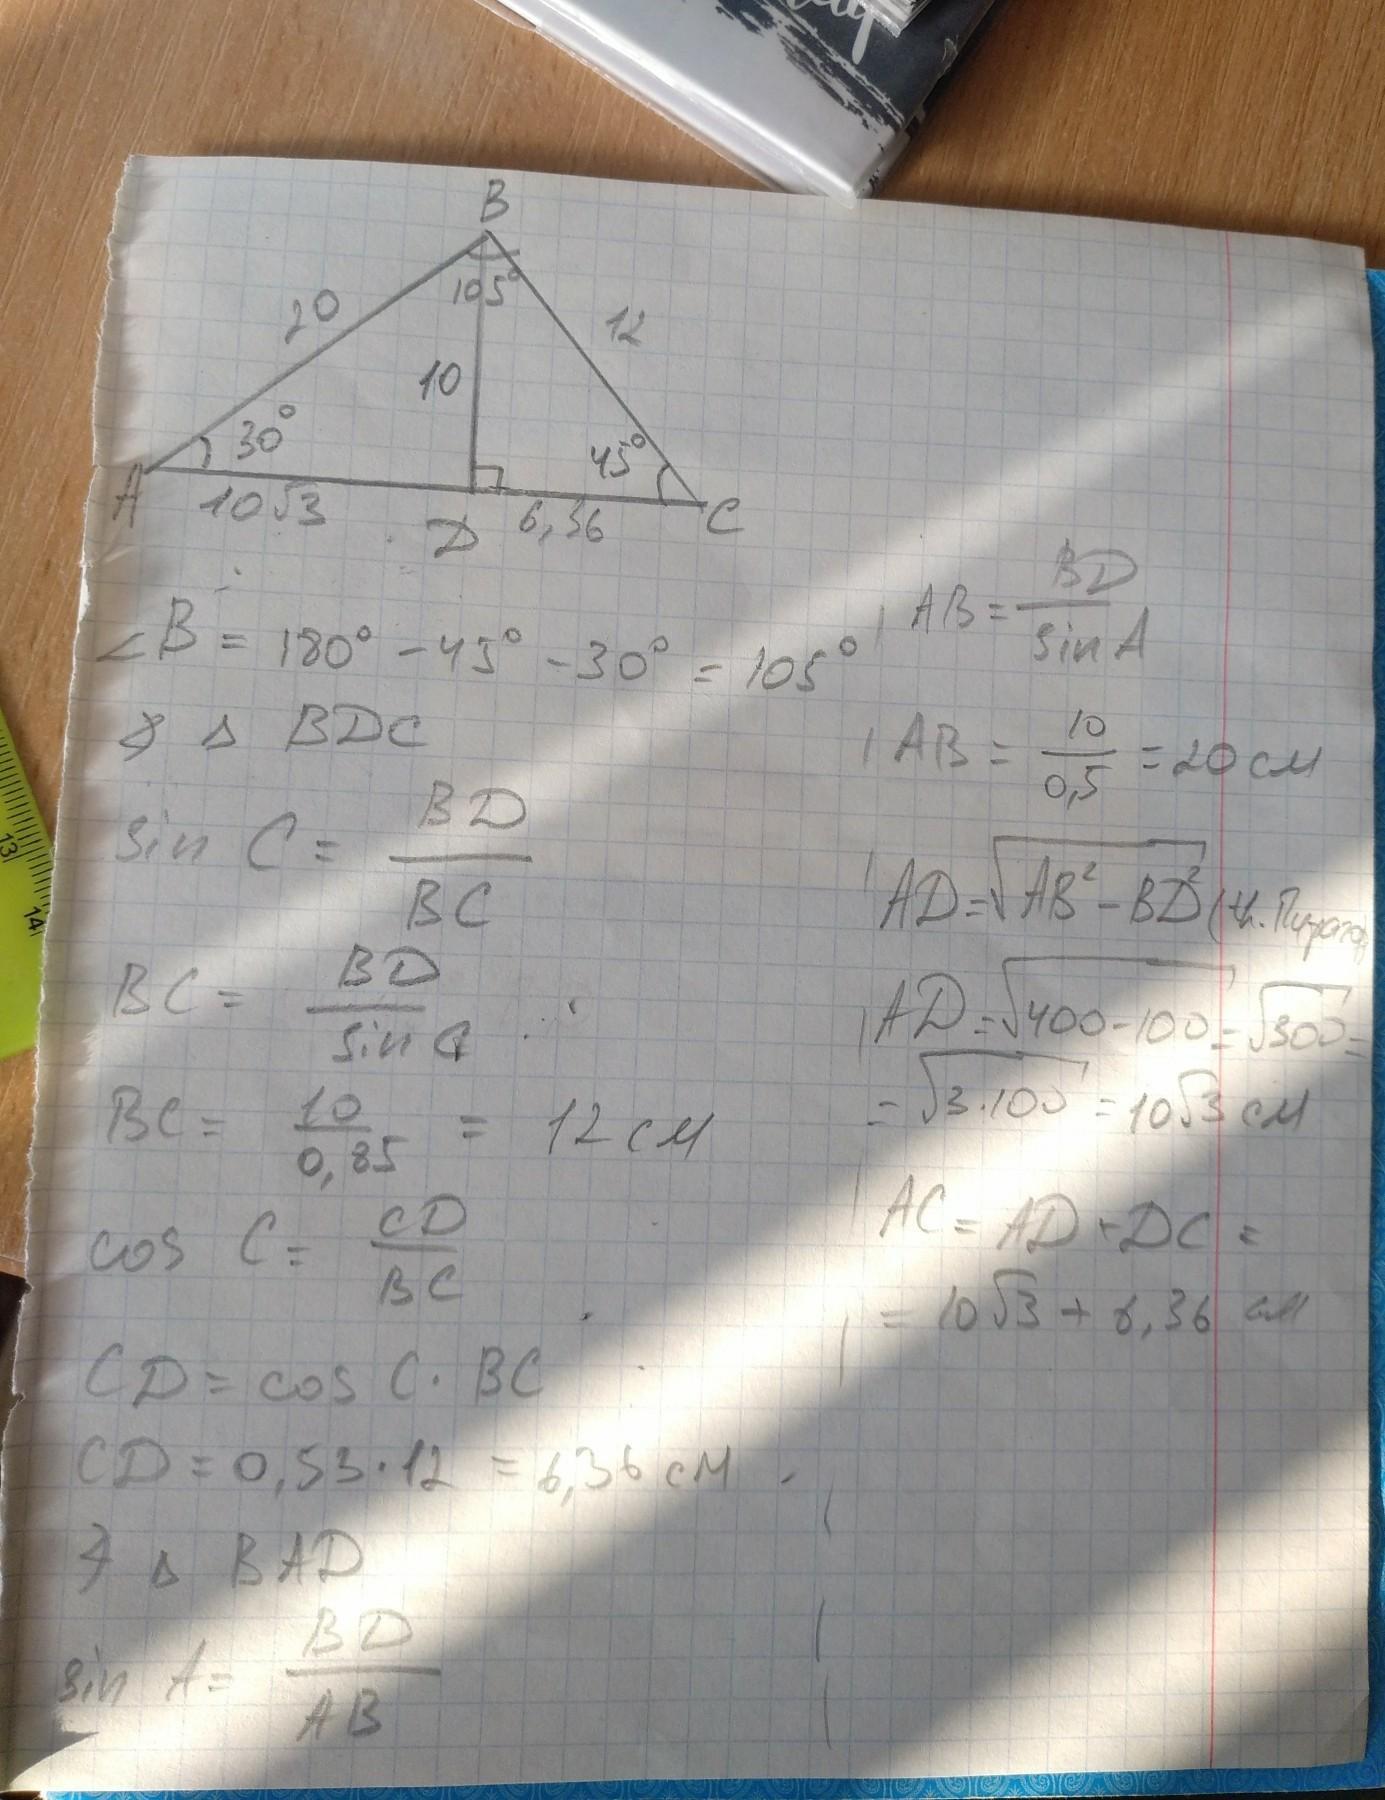 B
105°
20
12
10
30°
45°
A
10√3
D
6,36
C
∠B = 180° - 45° - 30° = 105°
Δ BDC
sin C = BD / BC
BC = BD / sin C
BC = 10 / 0,85 = 12 см
cos C = CD / BC
CD = cos C · BC
CD = 0,53 · 12 = 6,36 см
Δ BAD
sin A = BD / AB
AB = BD / sin A
AB = 10 / 0,5 = 20 см
AD = √AB² - BD² (
AD = √400 - 100 = √300 =
= √3 · 100 = 10√3 см
AC = AD + DC =
= 10√3 + 6,36 см
13
14